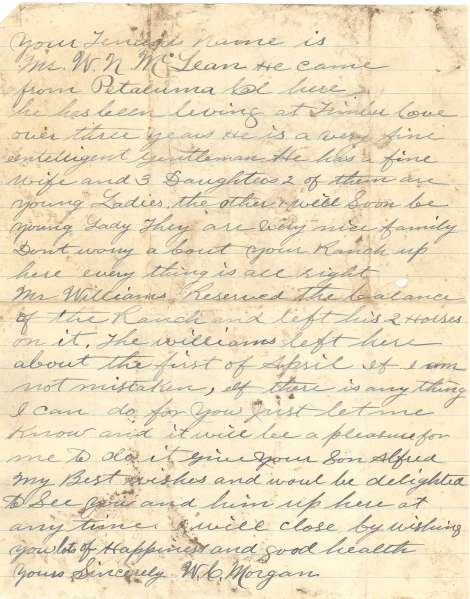 your Tenants name is
Mr. W. N. McLean He came
from Petaluma Cal here
he has been living at Timber Cove
over three years He is a very fine
intelligent gentleman He has a fine
wife and 3 Daughters 2 of them are
young Ladies, the other will soon be
young Lady They are very nice family
Dont worry about your Ranch up
here every thing is all right
Mr Williams Reserved the balance
of the Ranch and left his 2 Horses
on it. The williams left here
about the first of April if I am
not mistaken, if there is any thing
I can do for you just let me
Know and it will be a pleasure for
me to do it give your Son Alfred
my Best wishes and woul be delighted
to See you and him up here at
any time. I will close by wishing
you lots of Happiness and good health
yours Sincerely W. C. Morgan